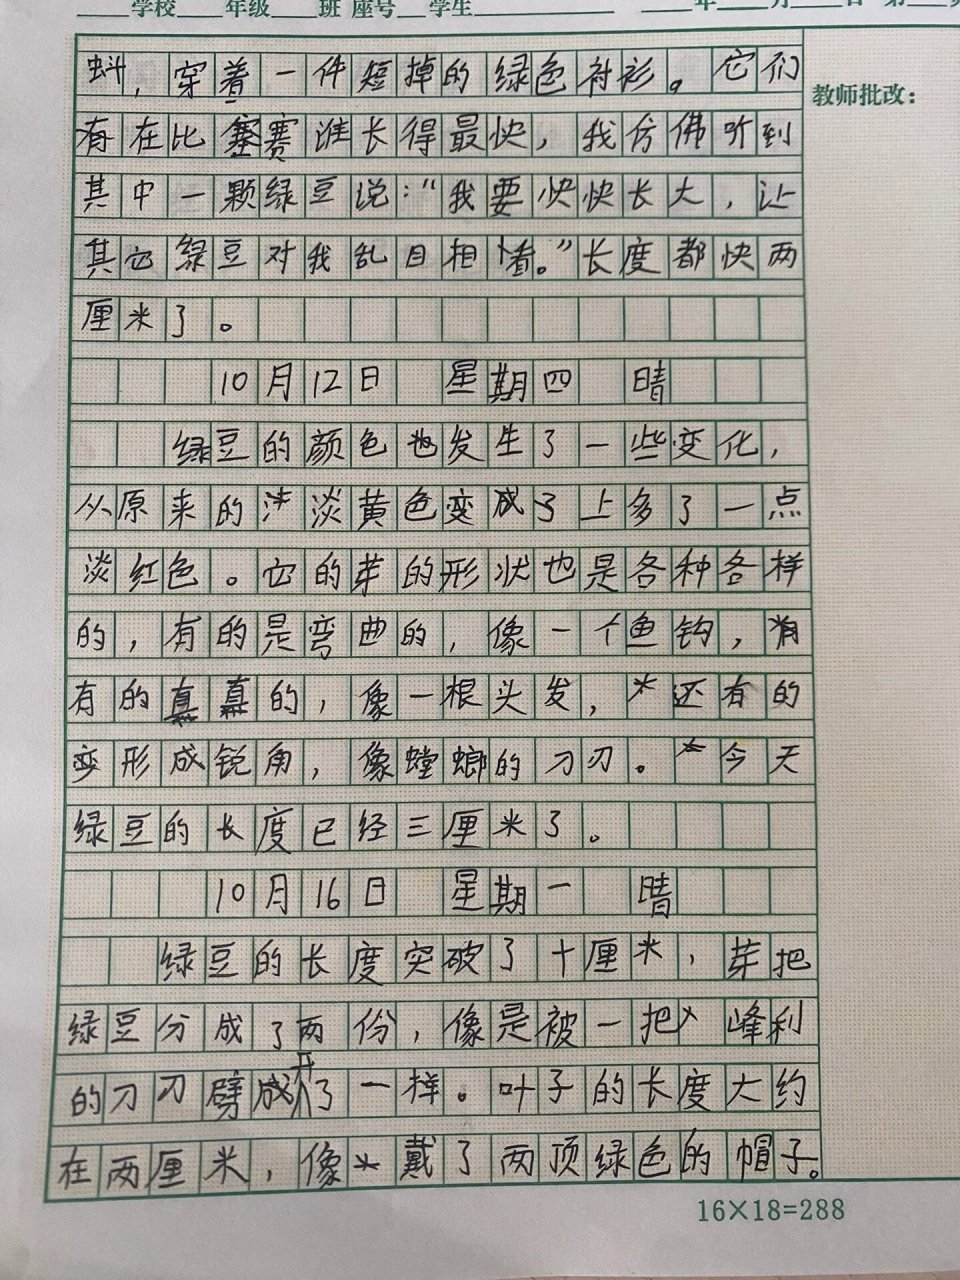 学校 年级 班 座号 学生 年 月 日 第
蚪，穿着一件短掉的绿色衬衫。它们
教师批改：
有在比赛谁长得最快，我仿佛听到
其中一颗绿豆说：“我要快快长大，让
其它绿豆对我乱目相看。”长度都快两
厘米了。
10月12日 星期四 晴
绿豆的颜色也发生了一些变化，
从原来的淡黄色变成了上多了一点
淡红色。它的芽的形状也是各种各样
的，有的是弯曲的，像一个鱼钩，
有的真真的，像一根头发，还有的
变形成锐角，像螳螂的刀刃。今天
绿豆的长度已经三厘米了。
10月16日 星期一 晴
绿豆的长度突破了十厘米，芽把
绿豆分成了两份，像是被一把峰利
的刀刃劈开了一样。叶子的长度大约
在两厘米，像戴了两顶绿色的帽子。
16×18=288